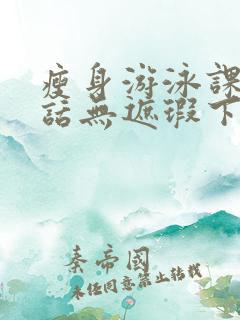 瘦身游泳課
話無遮瑕下
秦帝國
未经同意禁止转载